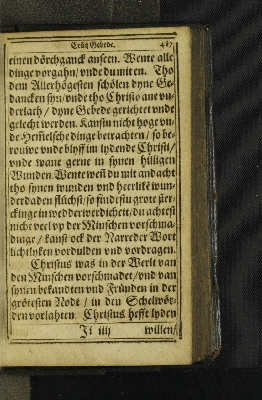 Crütz Gebede. 487
einen dörchganck ansern. Wente alle
dinge vorgahn / vnde du mit en. Tho
dem Allerhögesten schölen dyne Ge-
dancken syn / vnde tho Christo ane vn-
derlath / dyne Gebede gerichtet vnde
gelecht werden. Kanstu nicht hoge vn-
de Hemelsche dinge betrachten / so be-
rouwe vnde blyff im lydende Christi /
vnde wane gerne in synen hilligen
Wunden. Wente wen du mit andacht
tho synen wunden vnd heerlike wun-
derdaden flüchst / so findestu grote ster-
ckinge in wedderwerdicheit / du achtest
nicht veel vp der Minschen vorschma-
dinge / kanst ock der Narreder Wort
lichtlyken vordulden vnd vordragen.
Christus was in der Werlt van
den Minschen vorschmadet / vnd van
synen bekandten vnd Fründen in der
grötesten Nodt / in den Schelwör-
den vorlahten. Christus hefft lyden
Ji iiij willen /